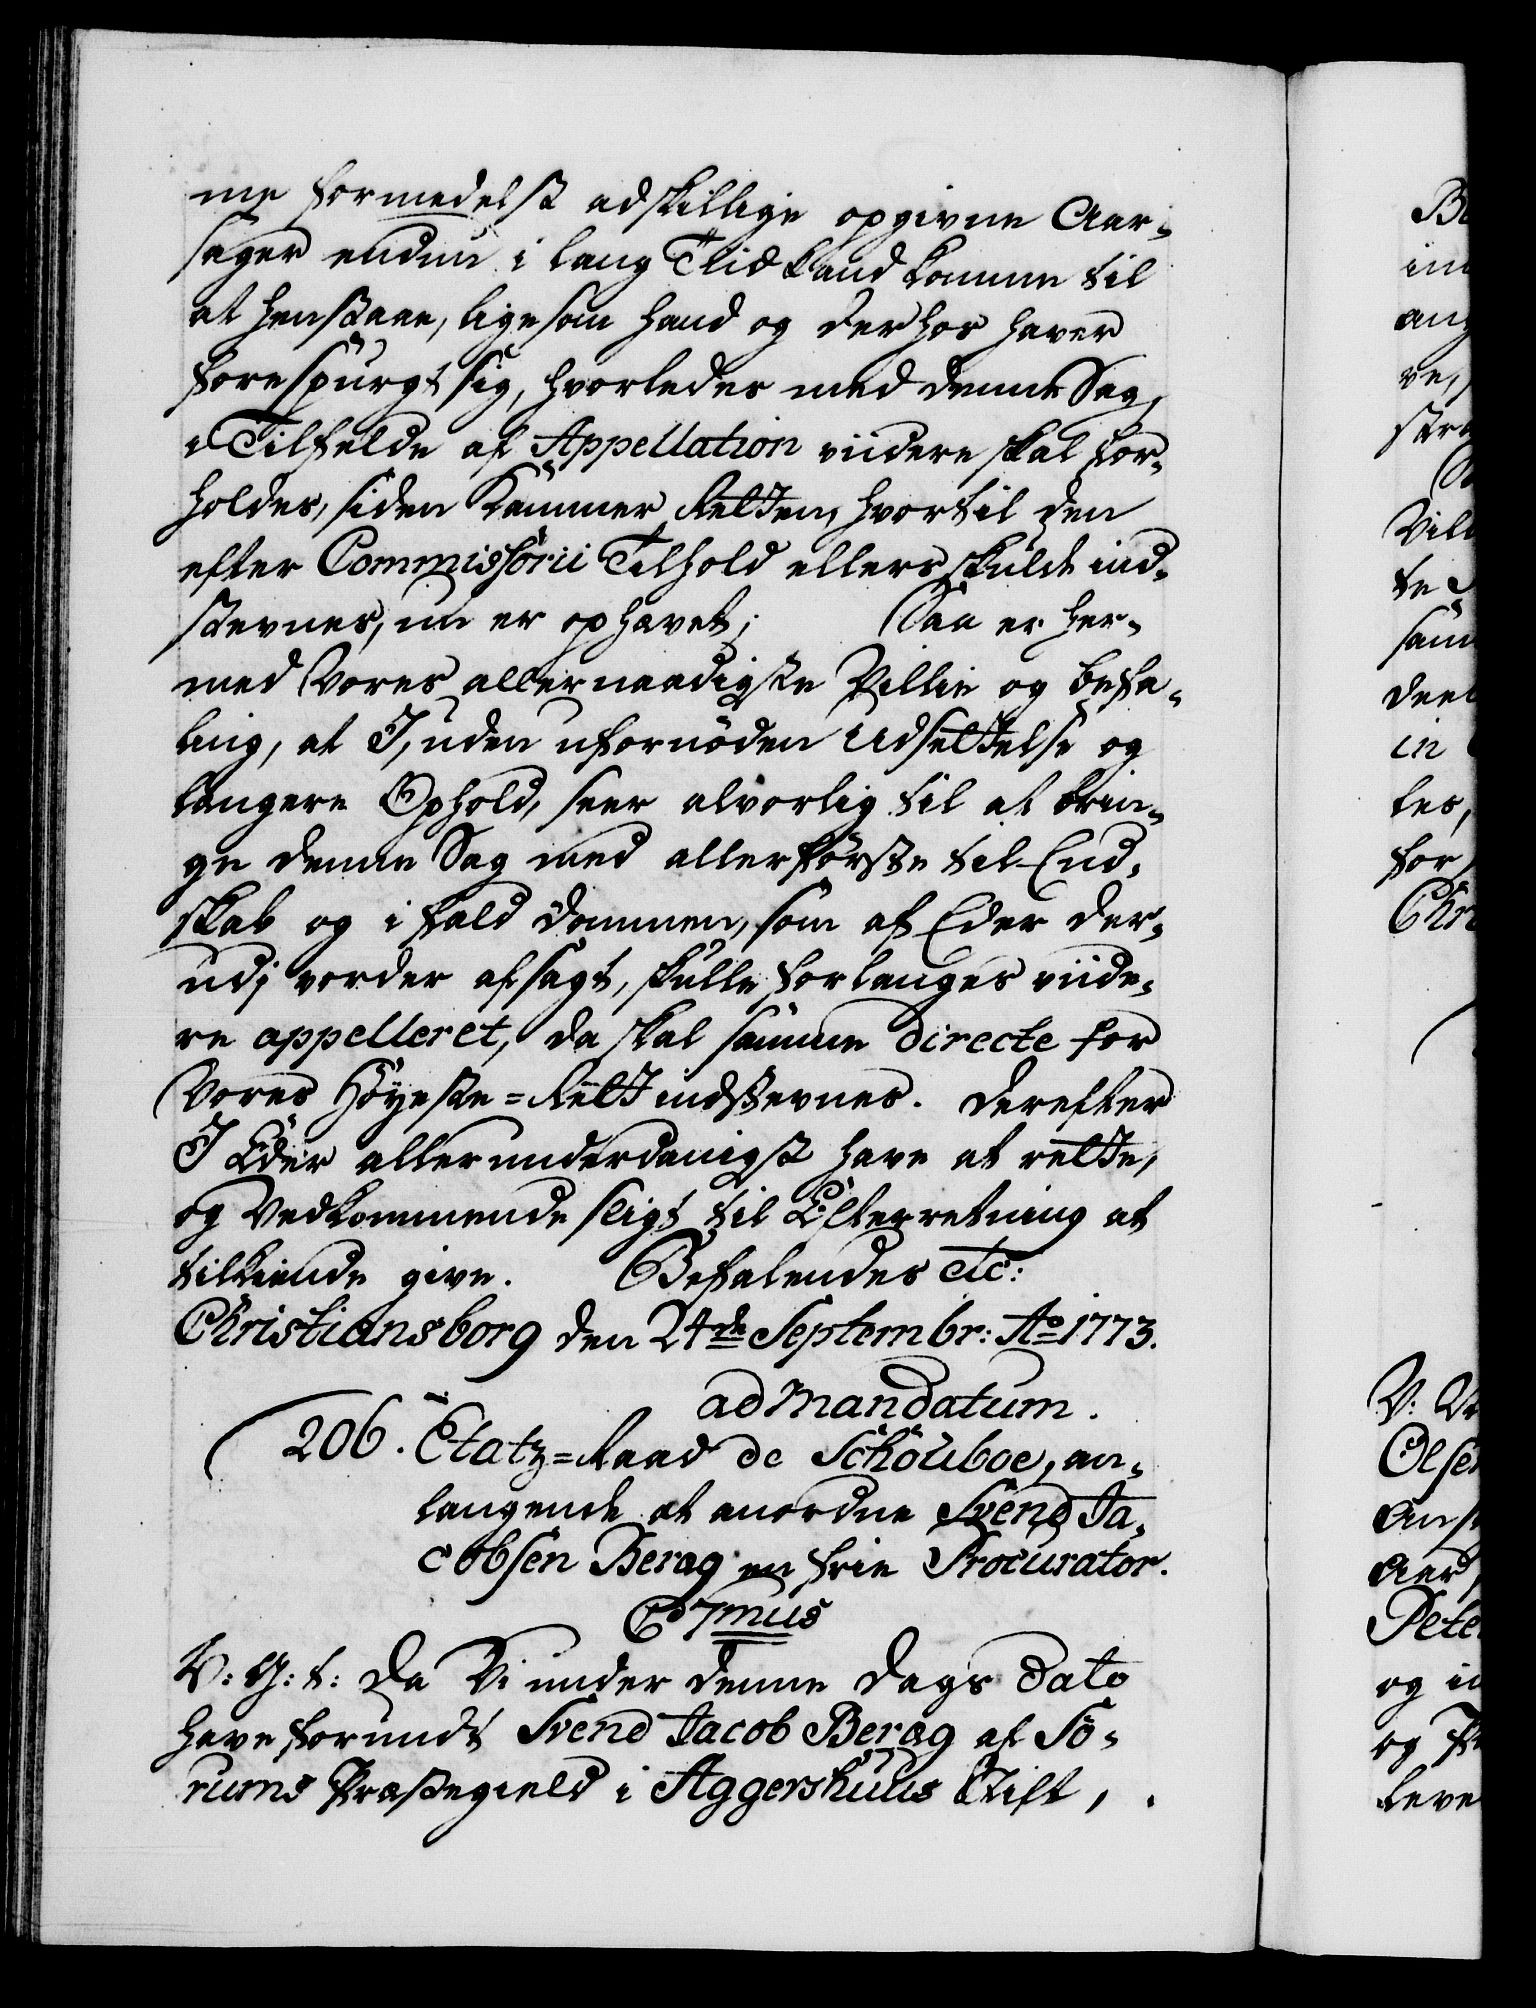 me formedelst adskillige opgivne Aar-
sager endnu i lang Tiid kand komme til
at henstaae, ligesom hand og derhos haver
forespurgt sig, hvorledes med denne Sag,
i Tilfelde af Appellation viidere skal for-
holdes, siden Kammer Retten, hvortil den
efter Commissorii Tilhold ellers skulde ind-
stevnes, nu er ophævet; Saa er her-
med Vores allernaadigste Villie og befa-
ling, at I, uden ufornöden Udsettelse og
længere Ophold, seer alvorlig til at brin-
ge denne Sag med allerförste til End-
skab og i fald dommen, som af Eder der-
udj vorder afsagt, skulle forlanges viide-
re appelleret, da skal samme directe for
Vores Höyeste-Rett indstevnes. Derefter
I Eder allerunderdanigst have at rette,
og Vedkommende sligt til Efterretning at
tilkiende give. Befalendes etc:
Christiansborg den 24de Septembr: Ao 1773.
ad Mandatum.
206. Etatz-Raad de Schouboe, an-
langende at anordne Svend Ja-
cobsen Berag en frie Procurator.
C7mus
V: G: t: Da Vi under denne Dags Dato
have forundt Svend Jacob Berag af Sö-
rums Præstegield i Aggershuus Stift,